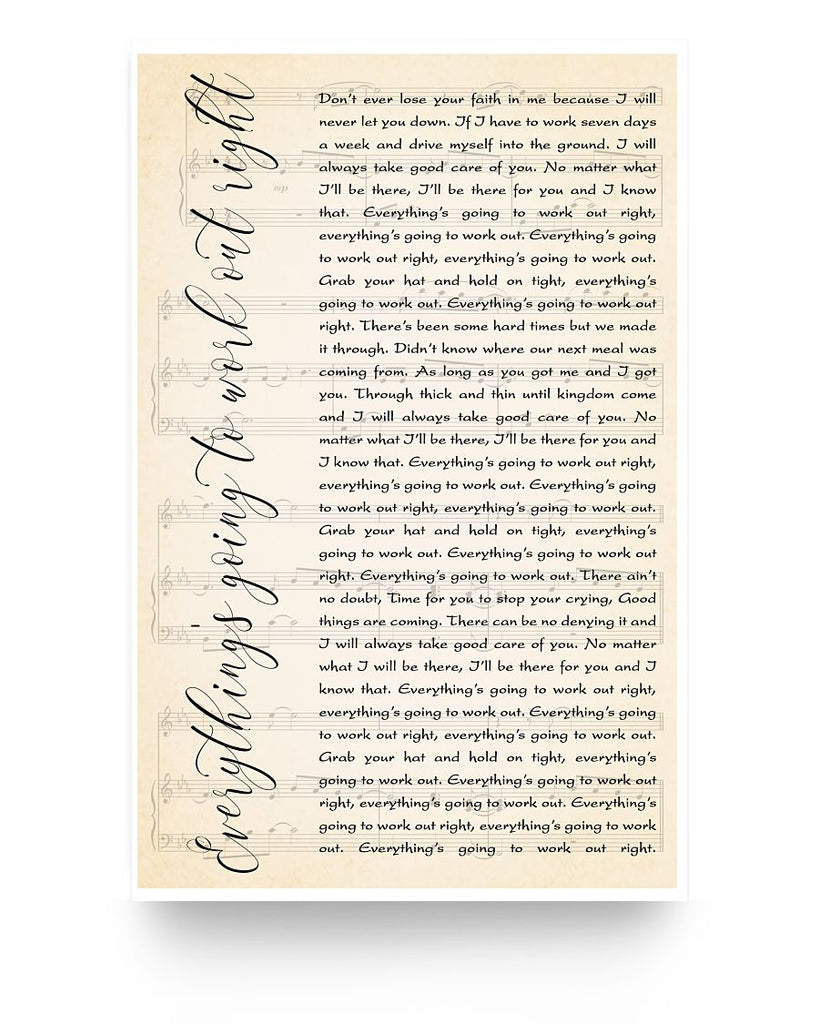 Everything's going to work out right
Don't ever lose your faith in me because I will
never let you down. If I have to work seven days
a week and drive myself into the ground. I will
always take good care of you. No matter what
I'll be there, I'll be there for you and I know
that. Everything's going to work out right,
everything's going to work out. Everything's going
to work out right, everything's going to work out.
Grab your hat and hold on tight, everything's
going to work out. Everything's going to work out
right. There's been some hard times but we made
it through. Didn't know where our next meal was
coming from. As long as you got me and I got
you. Through thick and thin until kingdom come
and I will always take good care of you. No
matter what I'll be there, I'll be there for you and
I know that. Everything's going to work out right,
everything's going to work out. Everything's going
to work out right, everything's going to work out.
Grab your hat and hold on tight, everything's
going to work out. Everything's going to work out
right. Everything's going to work out. There ain't
no doubt, Time for you to stop your crying, Good
things are coming. There can be no denying it and
I will always take good care of you. No matter
what I will be there, I'll be there for you and I
know that. Everything's going to work out right,
everything's going to work out. Everything's going
to work out right, everything's going to work out.
Grab your hat and hold on tight, everything's
going to work out. Everything's going to work out
right, everything's going to work out. Everything's
going to work out right, everything's going to work
out. Everything's going to work out right.
mp